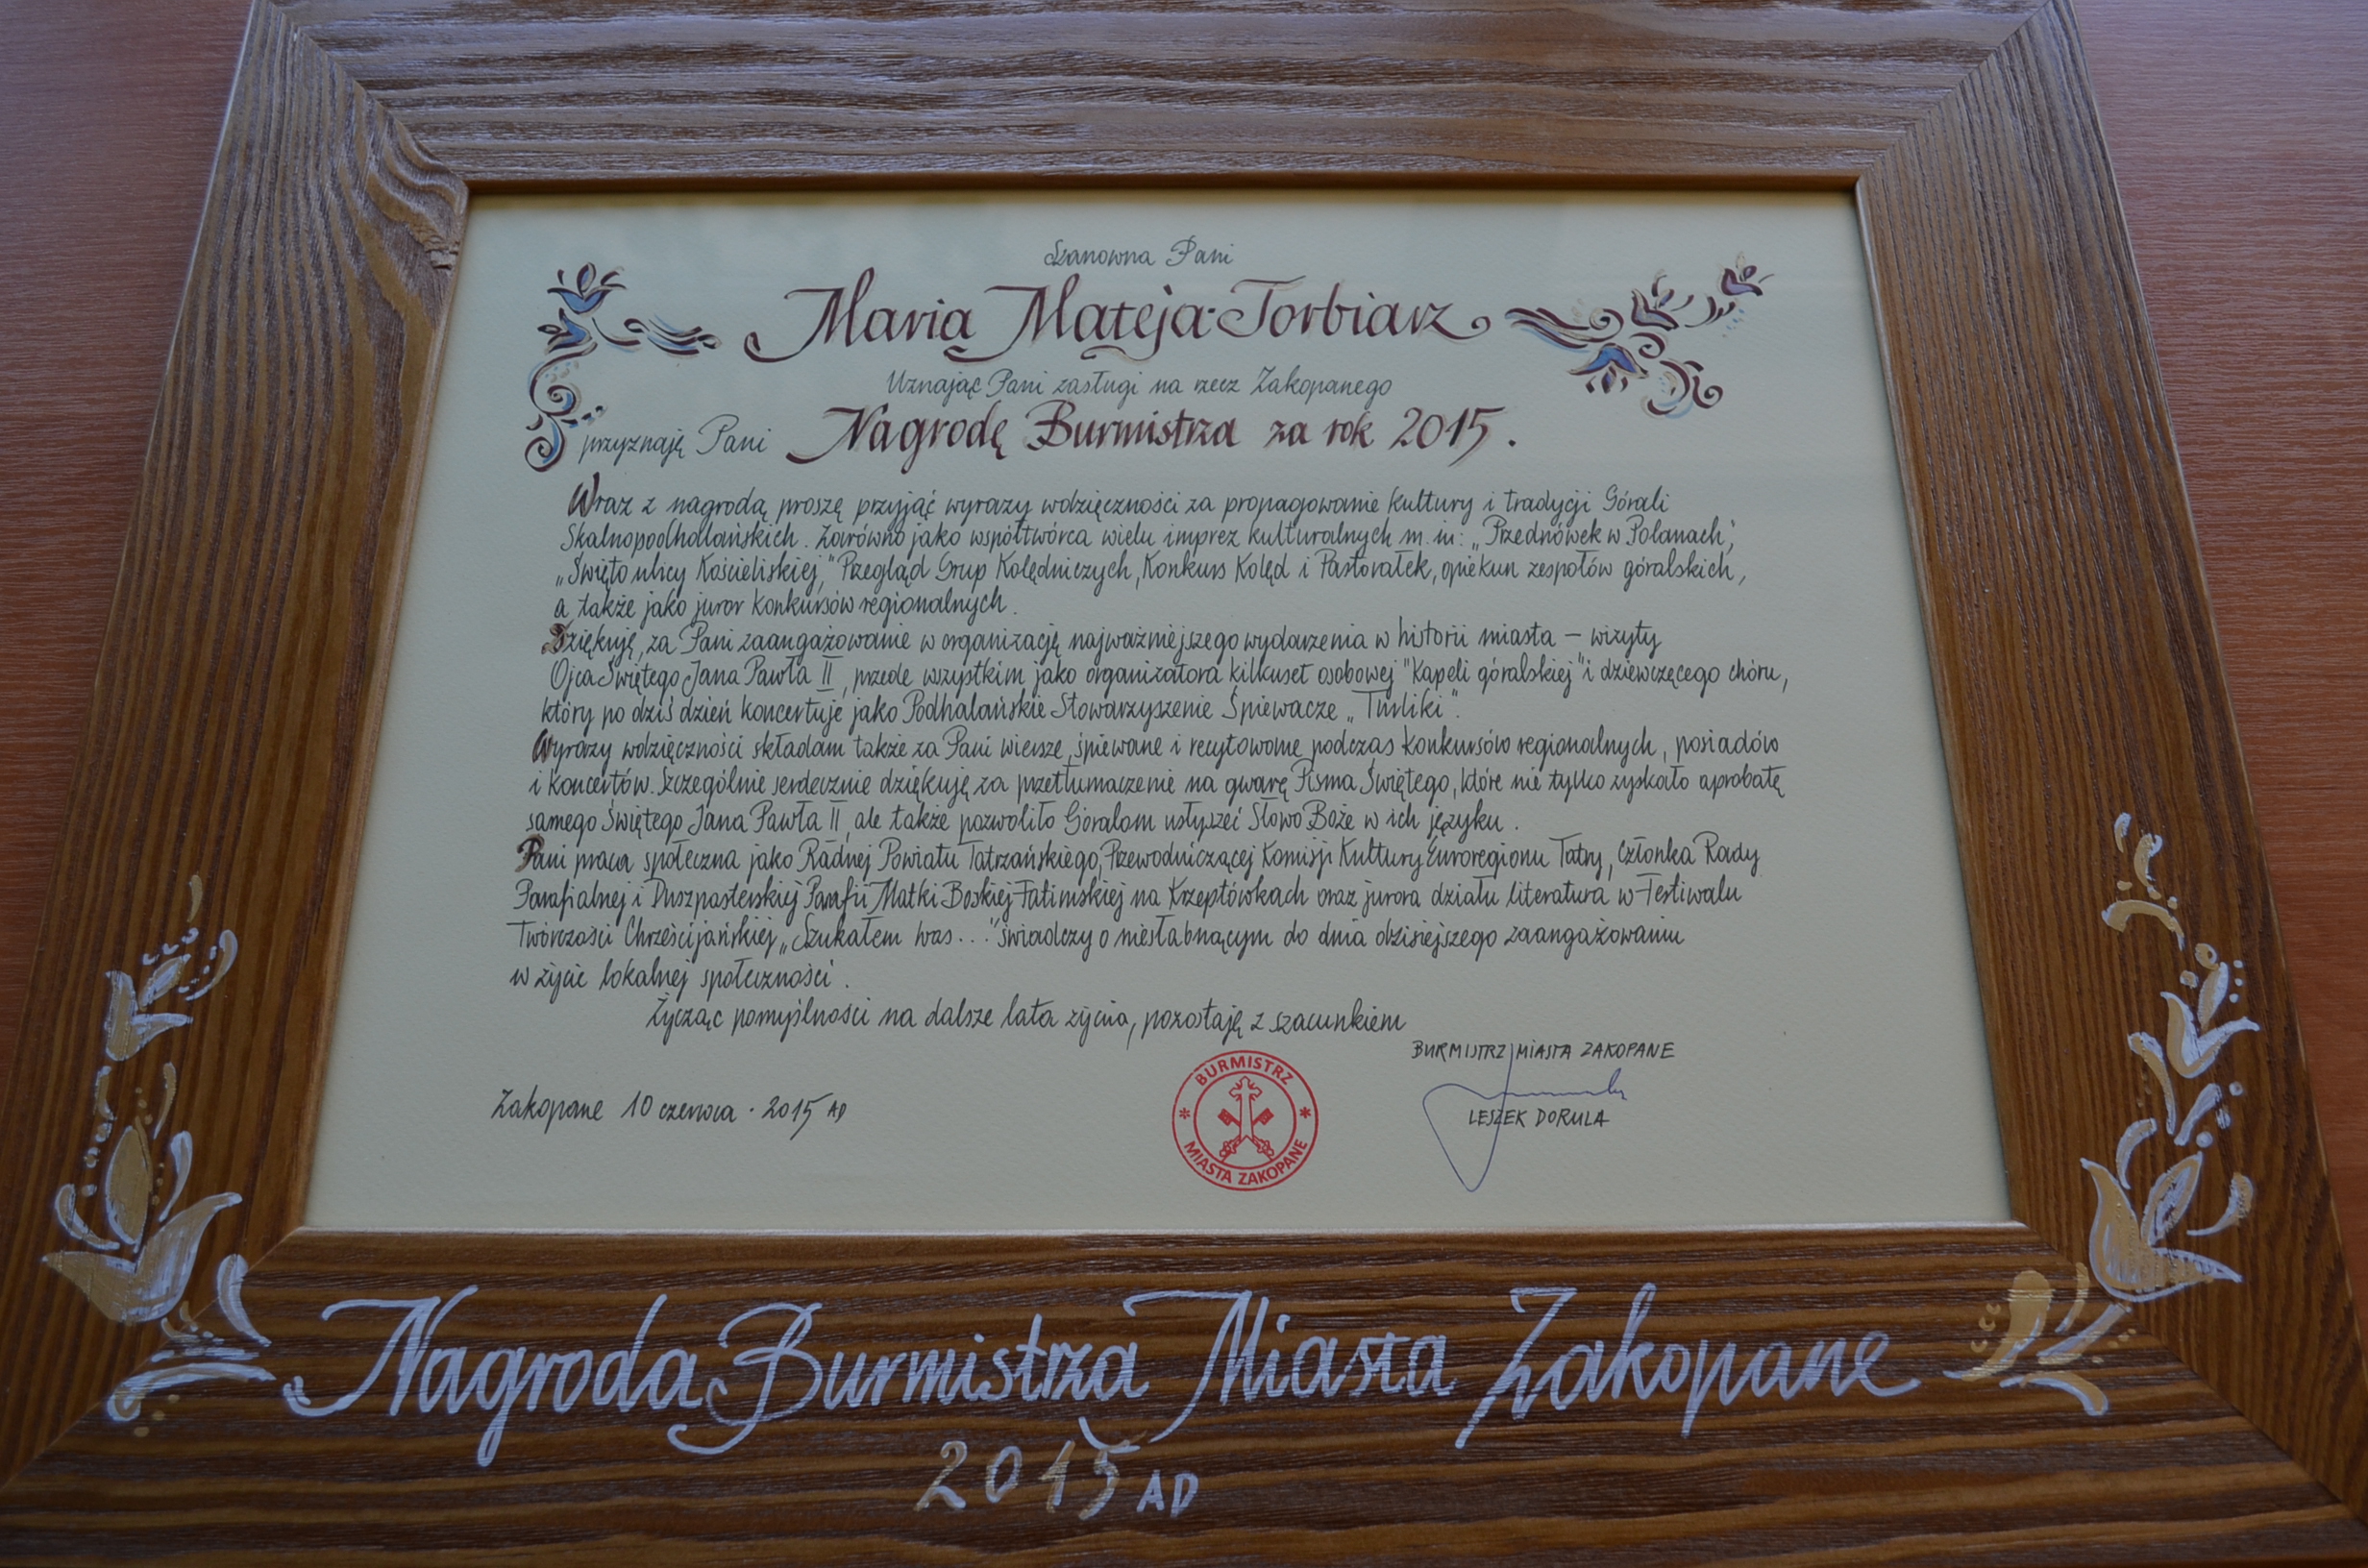 Szanowna Pani
Maria Mateja-Torbiarz
Uznając Pani zasługi na rzecz Zakopanego
przyznaję Pani Nagrodę Burmistrza za rok 2015.
Wraz z nagrodą proszę przyjąć wyrazy wdzięczności za propagowanie kultury i tradycji Górali
Skalnopodhalańskich. Zarówno jako współtwórca wielu imprez kulturalnych m. in: „Przednówek w Polanach",
„Święto ulicy Kościeliskiej," Przegląd Grup Kolędniczych, Konkurs Kolęd i Pastorałek, opiekun zespołów góralskich,
a także jako juror konkursów regionalnych.
Dziękuję, za Pani zaangażowanie w organizację najważniejszego wydarzenia w historii miasta – wizyty
Ojca Świętego Jana Pawła II, przede wszystkim jako organizatora kilkuset osobowej "Kapeli góralskiej" i dziewczęcego chóru,
który po dziś dzień koncertuje jako Podhalańskie Stowarzyszenie Śpiewacze „Turliki".
Wyrazy wdzięczności składam także za Pani wiersze, śpiewane i recytowane podczas konkursów regionalnych, posiadów
i koncertów. Szczególnie serdecznie dziękuję za przetłumaczenie na gwarę Pisma Świętego, które nie tylko zyskało aprobatę
samego Świętego Jana Pawła II, ale także pozwoliło Góralom usłyszeć Słowo Boże w ich języku.
Pani praca społeczna jako Radnej Powiatu Tatrzańskiego, Przewodniczącej Komisji Kultury Euroregionu Tatry, Członka Rady
Parafialnej i Duszpasterskiej Parafii Matki Boskiej Fatimskiej na Krzeptówkach oraz jurora działu literatura w Festiwalu
Twórczości Chrześcijańskiej „Szukałem was..." świadczy o niesłabnącym do dnia dzisiejszego zaangażowaniu
w życie lokalnej społeczności.
Życząc pomyślności na dalsze lata życia, pozostaję z szacunkiem
BURMISTRZ MIASTA ZAKOPANE
Zakopane 10 czerwca · 2015 AD
BURMISTRZ
MIASTA ZAKOPANE
LESZEK DORULA
Nagroda Burmistrza Miasta Zakopane
2015 AD